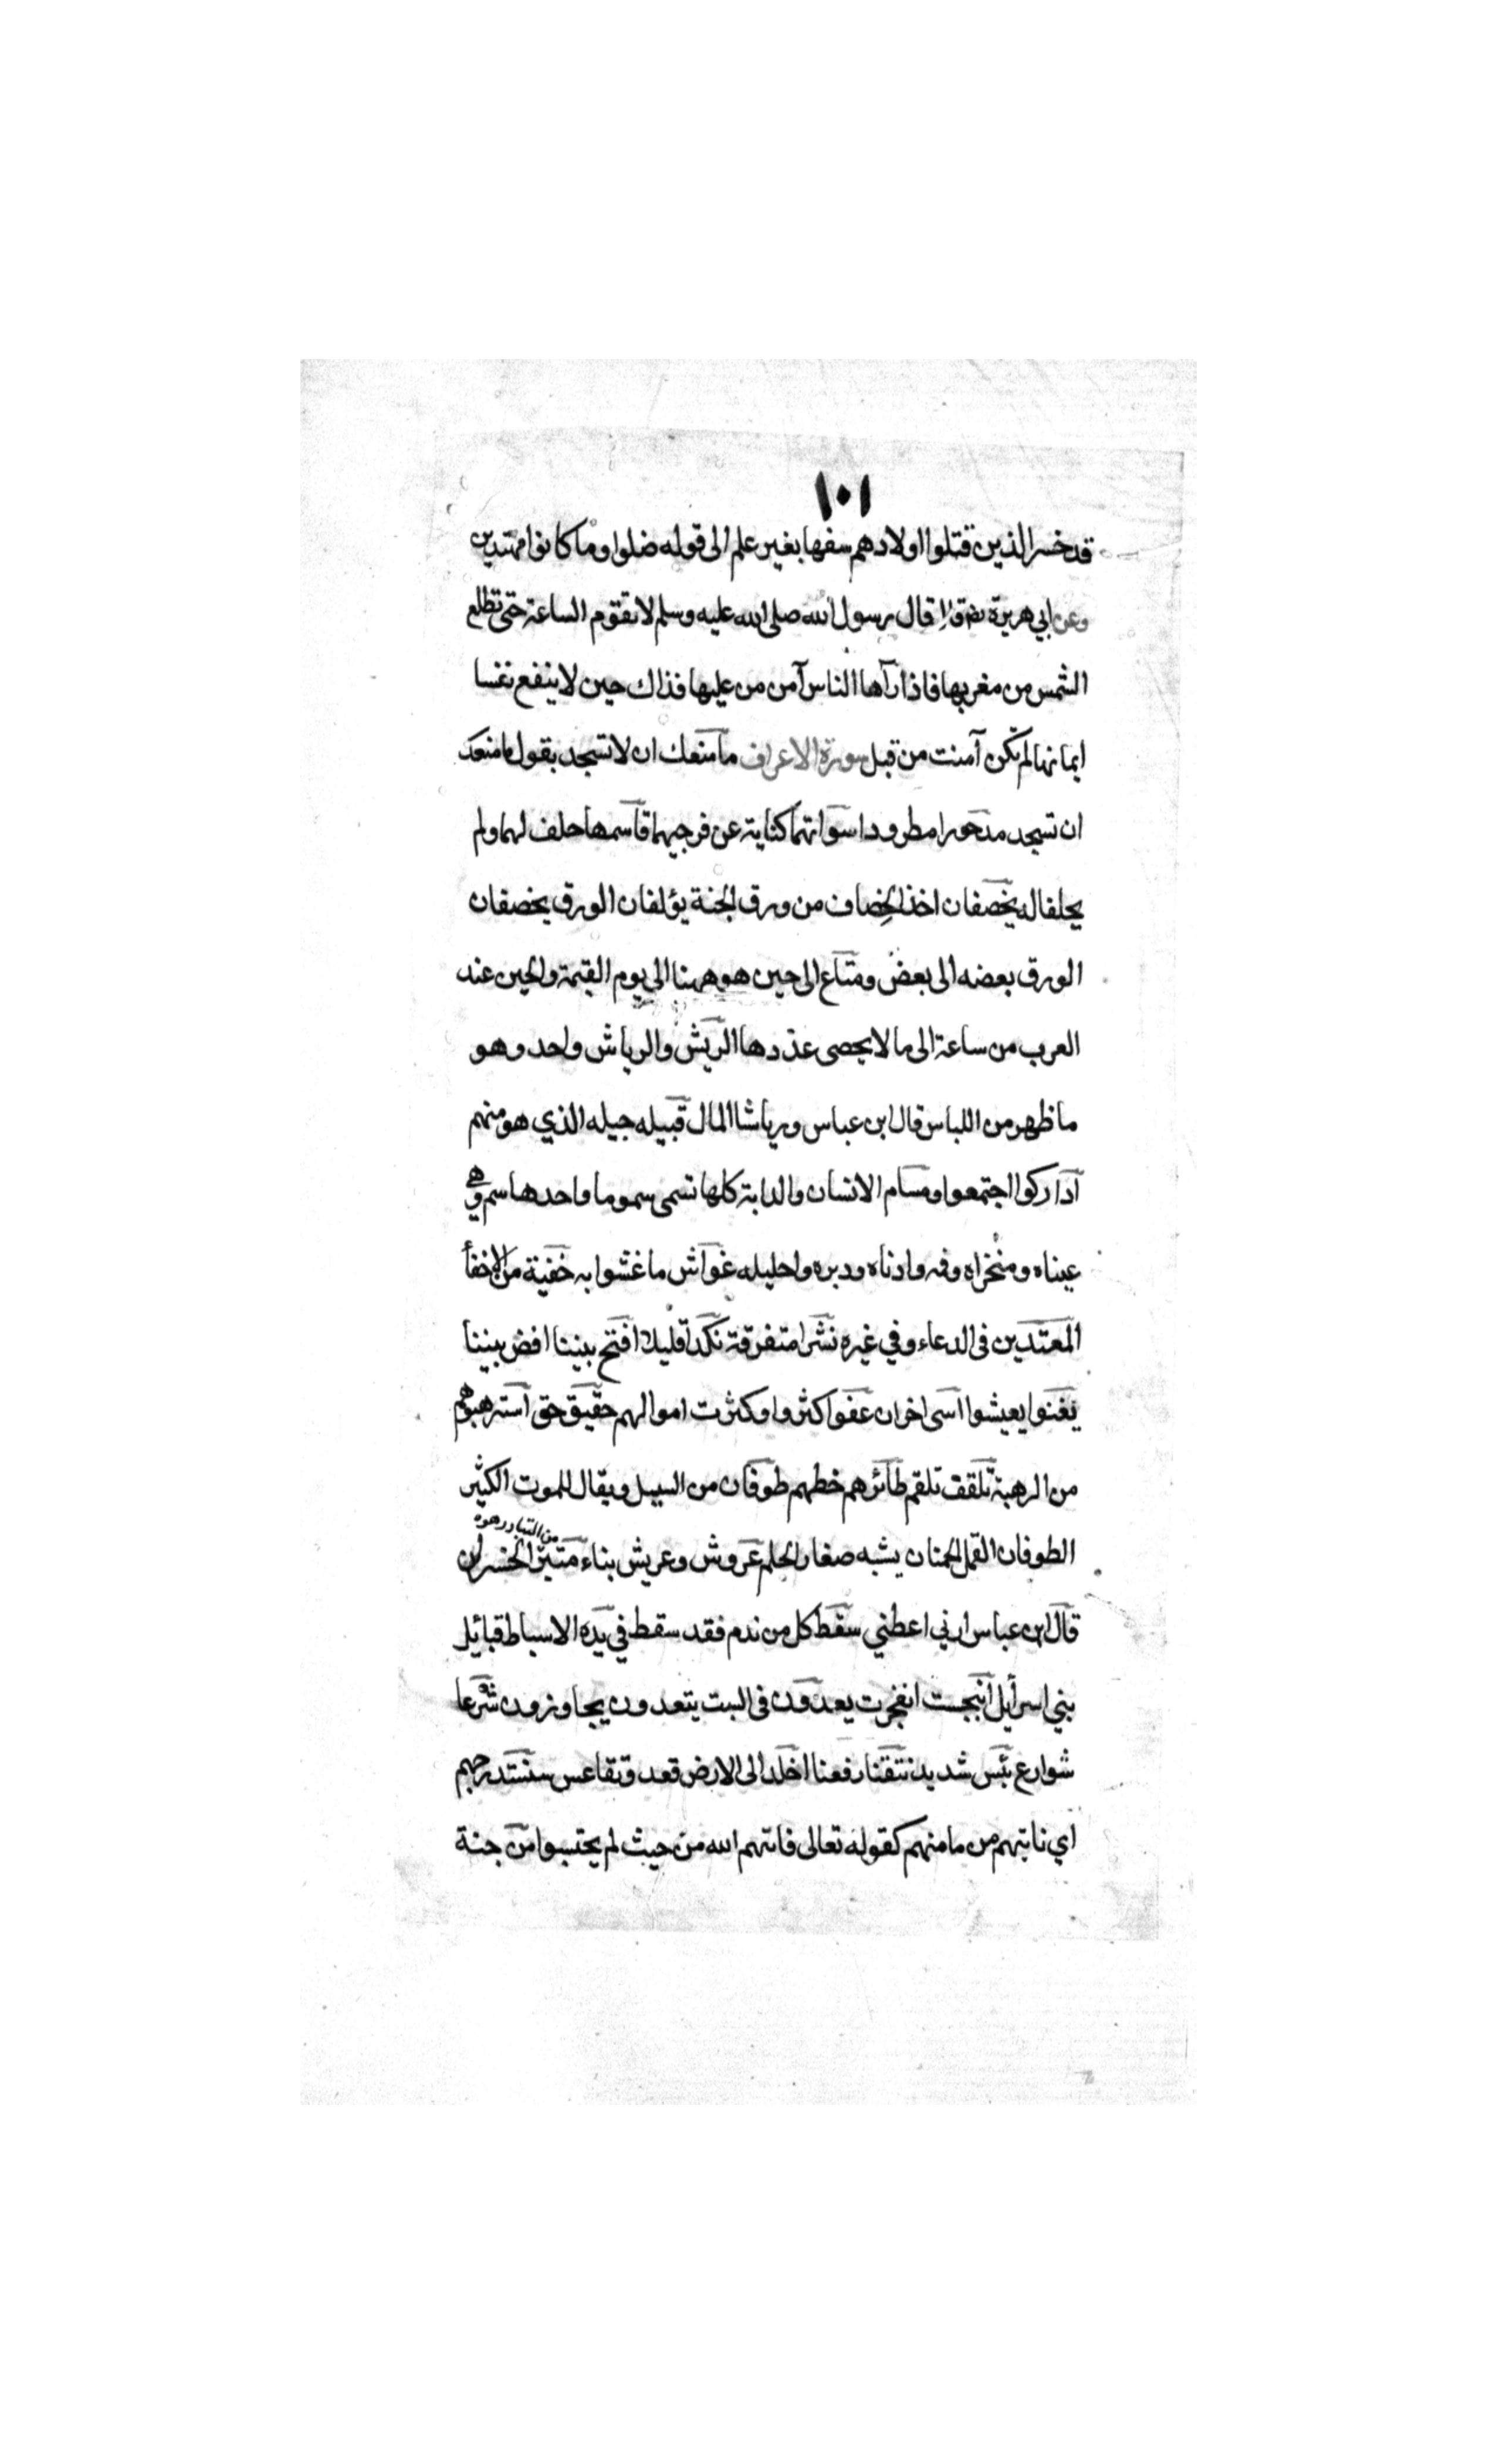 ١٠١
قد خسر الذين قتلوا اولادهم سفها بغير علم الى قوله ضلوا وما كانوا مهتدين
وعن ابي هريرة رضه قال قال رسول الله صلى الله عليه وسلم لا تقوم الساعة حتى تطلع
الشمس من مغربها فاذا رآها الناس آمن من عليها فذاك حين لا ينفع نفسا
ايمانها لم تكن آمنت من قبل سورة الاعراف ما منعك ان لا تسجد يقول ما منعك
ان تسجد مدحورا مطرودا سوآتهما كناية عن فرجيهما قاسمهما حلف لهما ولم
يحلفا له يخصفان اخذا الخصاف من ورق الجنة يؤلفان الورق يخصفان
الورق بعضه الى بعض ومتاع الى حين هو ههنا الى يوم القيمة والحين عند
العرب من ساعة الى ما لا يحصى عددها الريش والرياش واحد وهو
ما ظهر من اللباس قال ابن عباس ورياشا المال قبيله جيله الذي هو منهم
اداركوا اجتمعوا ومسام الانسان والدابة كلها تسمى سموما واحدها سم وهي
عيناه ومنخراه وفمه واذناه ودبره واحليله غواش ما غشوا به خفية من الاخفأ
المعتدين فى الدعاء وفي غيره نشرا متفرقة نكدا قليلا افتح بيننا اقض بيننا
يغنوا يعيشوا اسى احزن عفوا كثروا وكثرت اموالهم حقيق حق استرهبوهم
من الرهبة تلقف تلقم طائرهم حظهم طوفان من السيل ويقال للموت الكثير
الطوفان القمل الحمنان يشبه صغار الحلم عروش وعريش بناء متبر الخسران
من التبار وهو
قال ابن عباس ارني اعطني سقط كل من ندم فقد سقط في يده الاسباط قبائل
بني اسرائيل انبجست انفجرت يعدون فى السبت يتعدون يجاوزون شرعا
شوارع بئس شديد نتقنا رفعنا اخلد الى الارض قعد وتقاعس سنستدرجهم
اي ناتيهم من مامنهم كقوله تعالى فاتيهم الله من حيث لم يحتسبوا من جنة